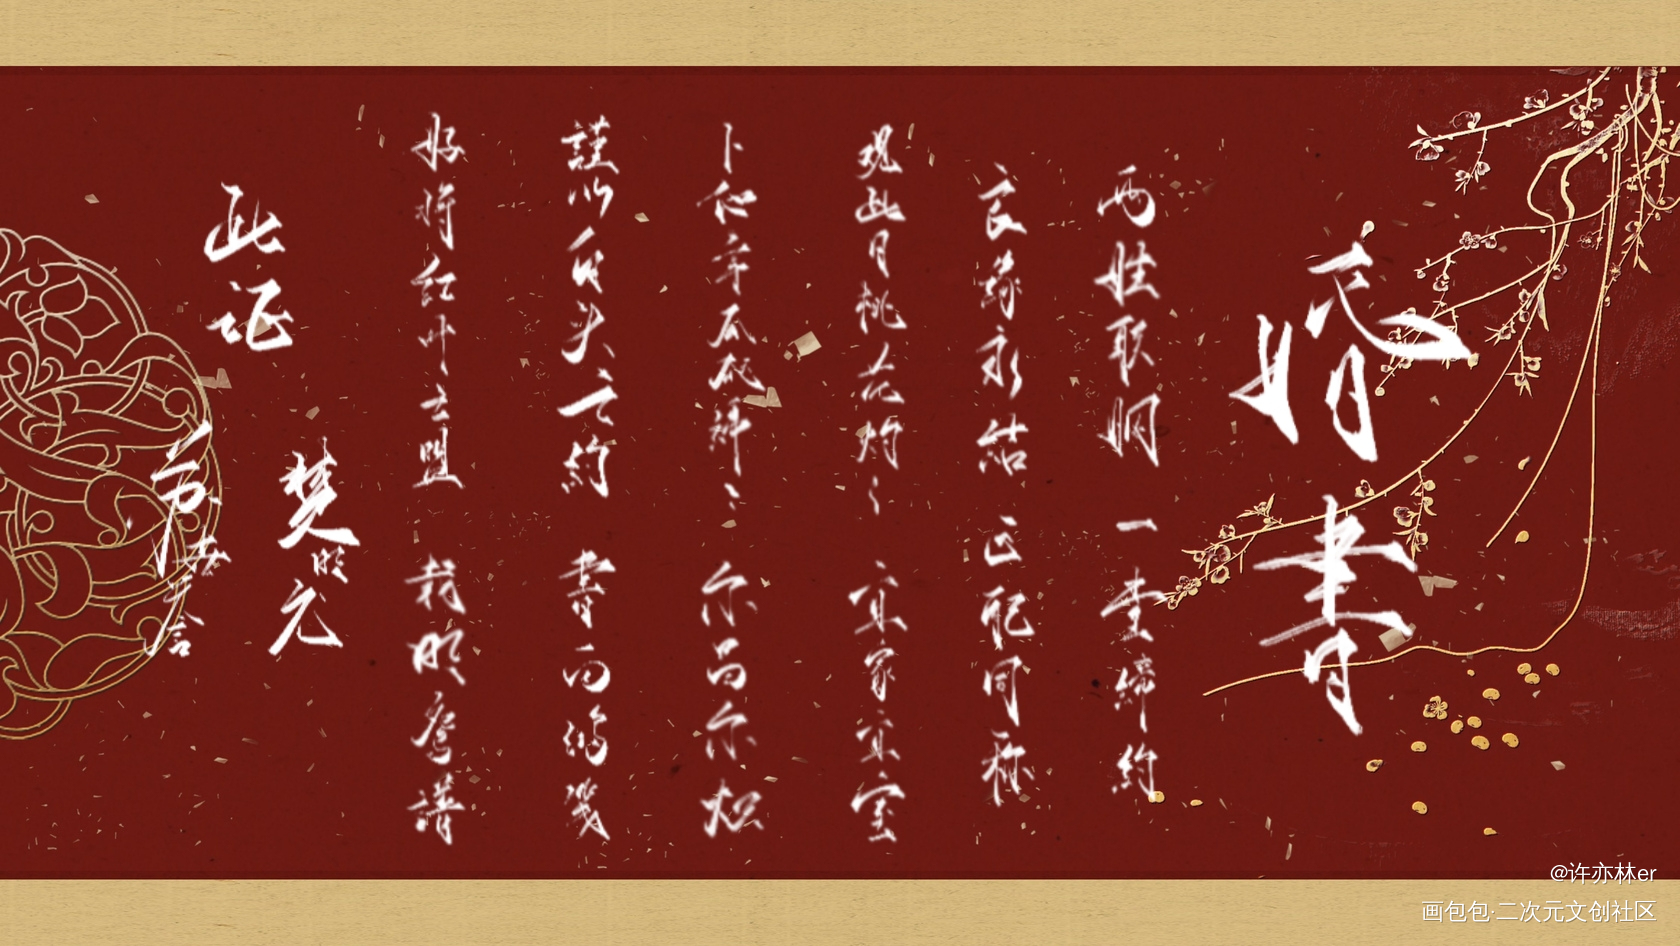 婚書
两姓联姻 一堂締約
良緣永結 匹配同称
观此日桃花灼灼 宜家宜室
卜他年瓜瓞绵绵 尔昌尔炽
謹以白头之約 書向鸿箋
好将红叶之盟 载明鸳譜
此证
楚明允
苏世誉
@许亦林er
画包包·二次元文创社区